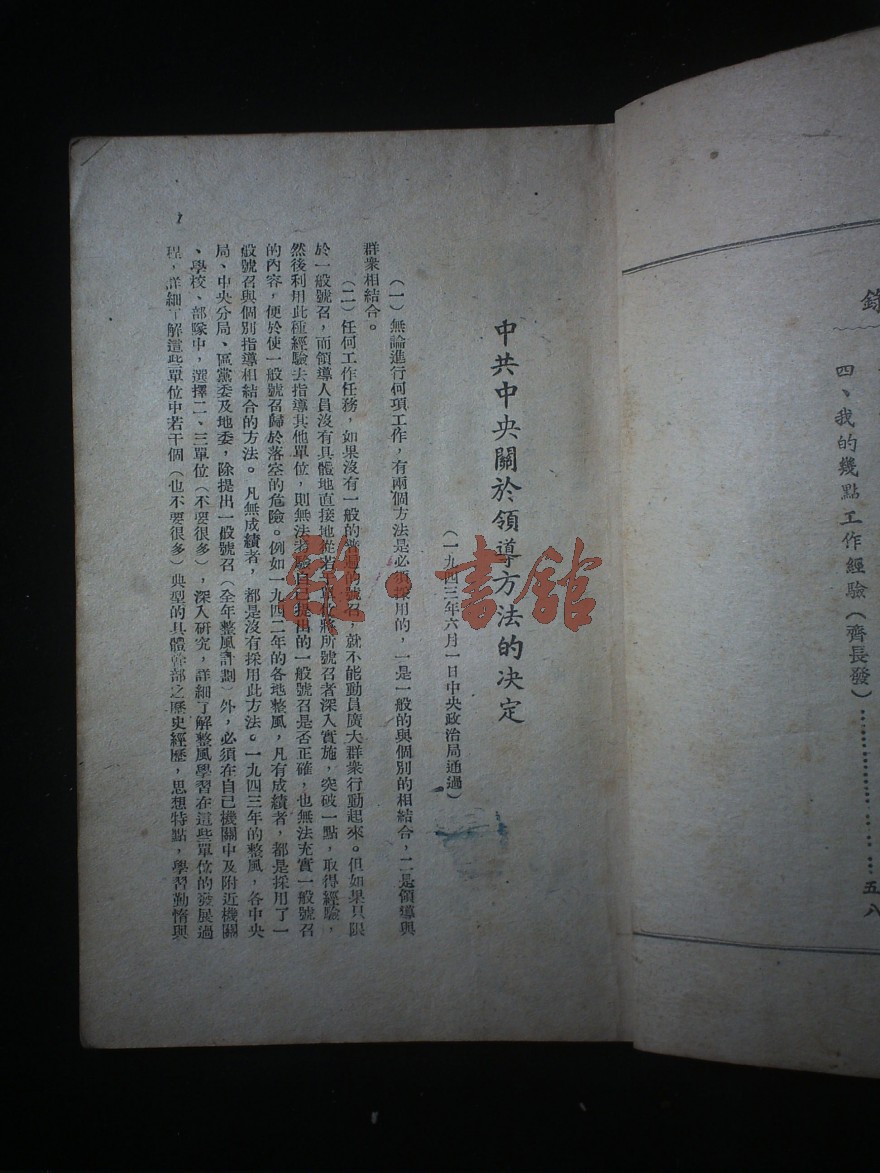 錄
四、我的幾點工作經驗(齊長發)…………五八
中共中央關於領導方法的決定
(一九四三年六月一日中央政治局通過)
(一)無論進行何項工作,有兩個方法是必須採用的,一是一般的與個別的相結合,二是領導與
群衆相結合。
(二)任何工作任務,如果沒有一般的普遍的號召,就不能動員廣大群衆行動起來。但如果只限
於一般號召,而領導人員沒有具體地直接地從若干單位將所號召者深入實施,突破一點,取得經驗,
然後利用此種經驗去指導其他單位,則無法考驗自己提出的一般號召是否正確,也無法充實一般號召
的內容,便於使一般號召歸於落空的危險。例如一九四二年的各地整風,凡有成績者,都是採用了一
般號召與個別指導相結合的方法。凡無成績者,都是沒有採用此方法。一九四三年的整風,各中央
局、中央分局、區黨委及地委,除提出一般號召(全年整風計劃)外,必須在自己機關中及附近機關
、學校、部隊中,選擇二、三單位(不要很多),深入研究,詳細了解整風學習在這些單位的發展過
程,詳細了解這些單位中若干個(也不要很多)典型的具體幹部之歷史經歷,思想特點,學習勤惰與
1
書館